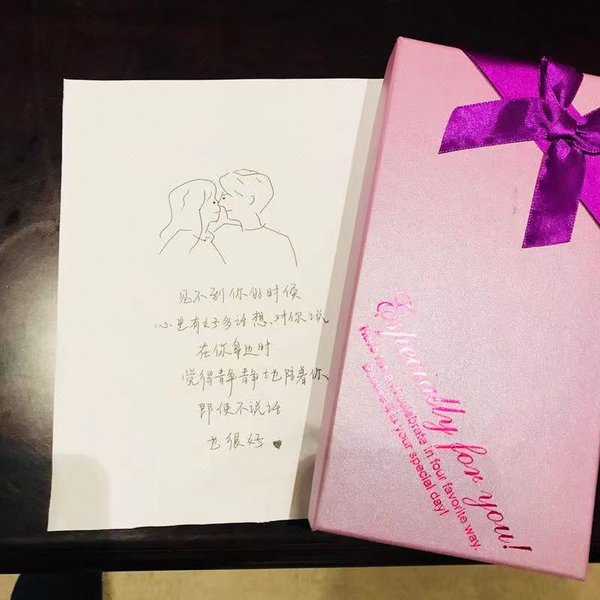 见不到你的时候
心里有好多话想对你说
在你身边时
觉得静静地陪着你
即使不说话
也很好
Especially for you!
celebrate in four favorite way.
is your special day!